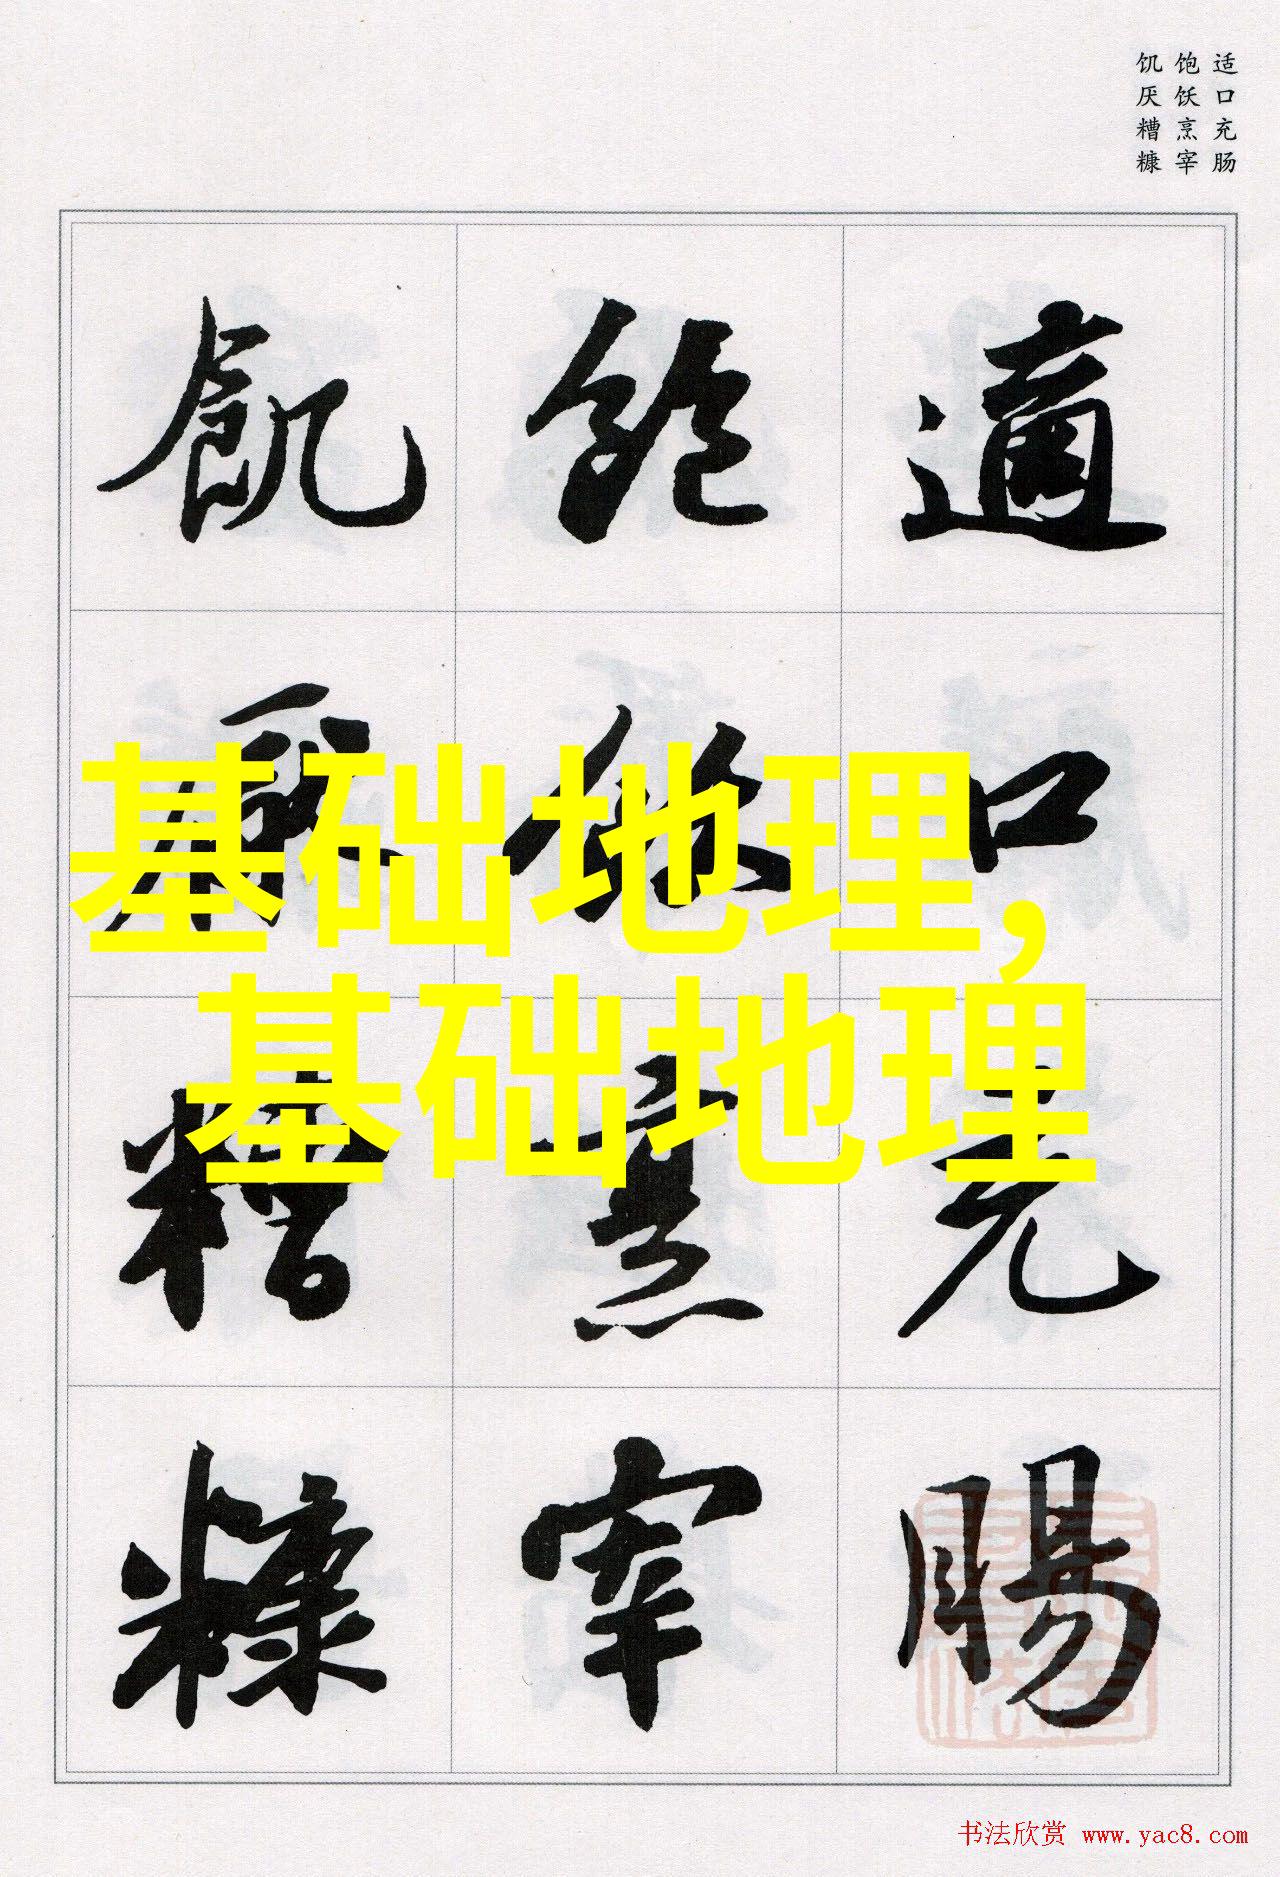 适口充肠
饱饫烹宰
饥厌糟糠
適口充腸
飽飫烹宰
飢厭糟糠
基础地理,
基础地理
书法欣赏 www.yac8.com